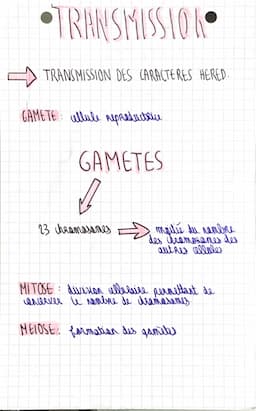 TRANSMISSION
TRANSMISSION DES CARACTERES HERED.
GAMETE: cellule reproductrice
GAMETES
23 chromosomes
moitié du nombre
des chromosomes des
autres cellules
MITOSE: division cellulaire permettant de
conserver le nombre de chromosomes
MEIOSE: formation des gamètes